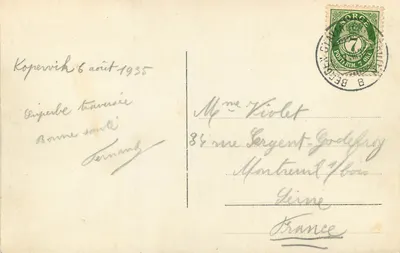 Kopervik 6 août 1935
Superbe traversée
Bonne santé
Fernand
NORGE
7
BERGEN
B
Mme Violet
84 rue Sergent-Godefroy
Montreuil s/bois
Seine
France